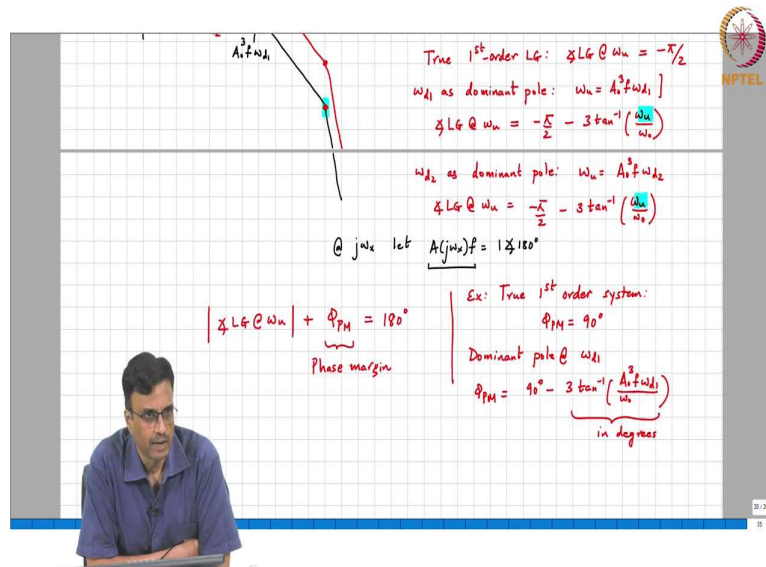 A₀³ f ω_d1
True 1st-order LG: ∡LG @ ωu = -π/2
ω_d1 as dominant pole: ωu = A₀³ f ω_d1 ]
∡LG @ ωu = -π/2 - 3 tan⁻¹(ωu/ω₀)
ω_d2 as dominant pole: ωu = A₀³ f ω_d2
∡LG @ ωu = -π/2 - 3 tan⁻¹(ωu/ω₀)
@ jωx let A(jωx)f = 1∡180°
|∡LG @ ωu| + Φ_PM = 180°
Phase margin
Ex: True 1st order system:
Φ_PM = 90°
Dominant pole @ ω_d1
Φ_PM = 90° - 3 tan⁻¹(A₀³ f ω_d1/ω₀)
in degrees
NPTEL
35